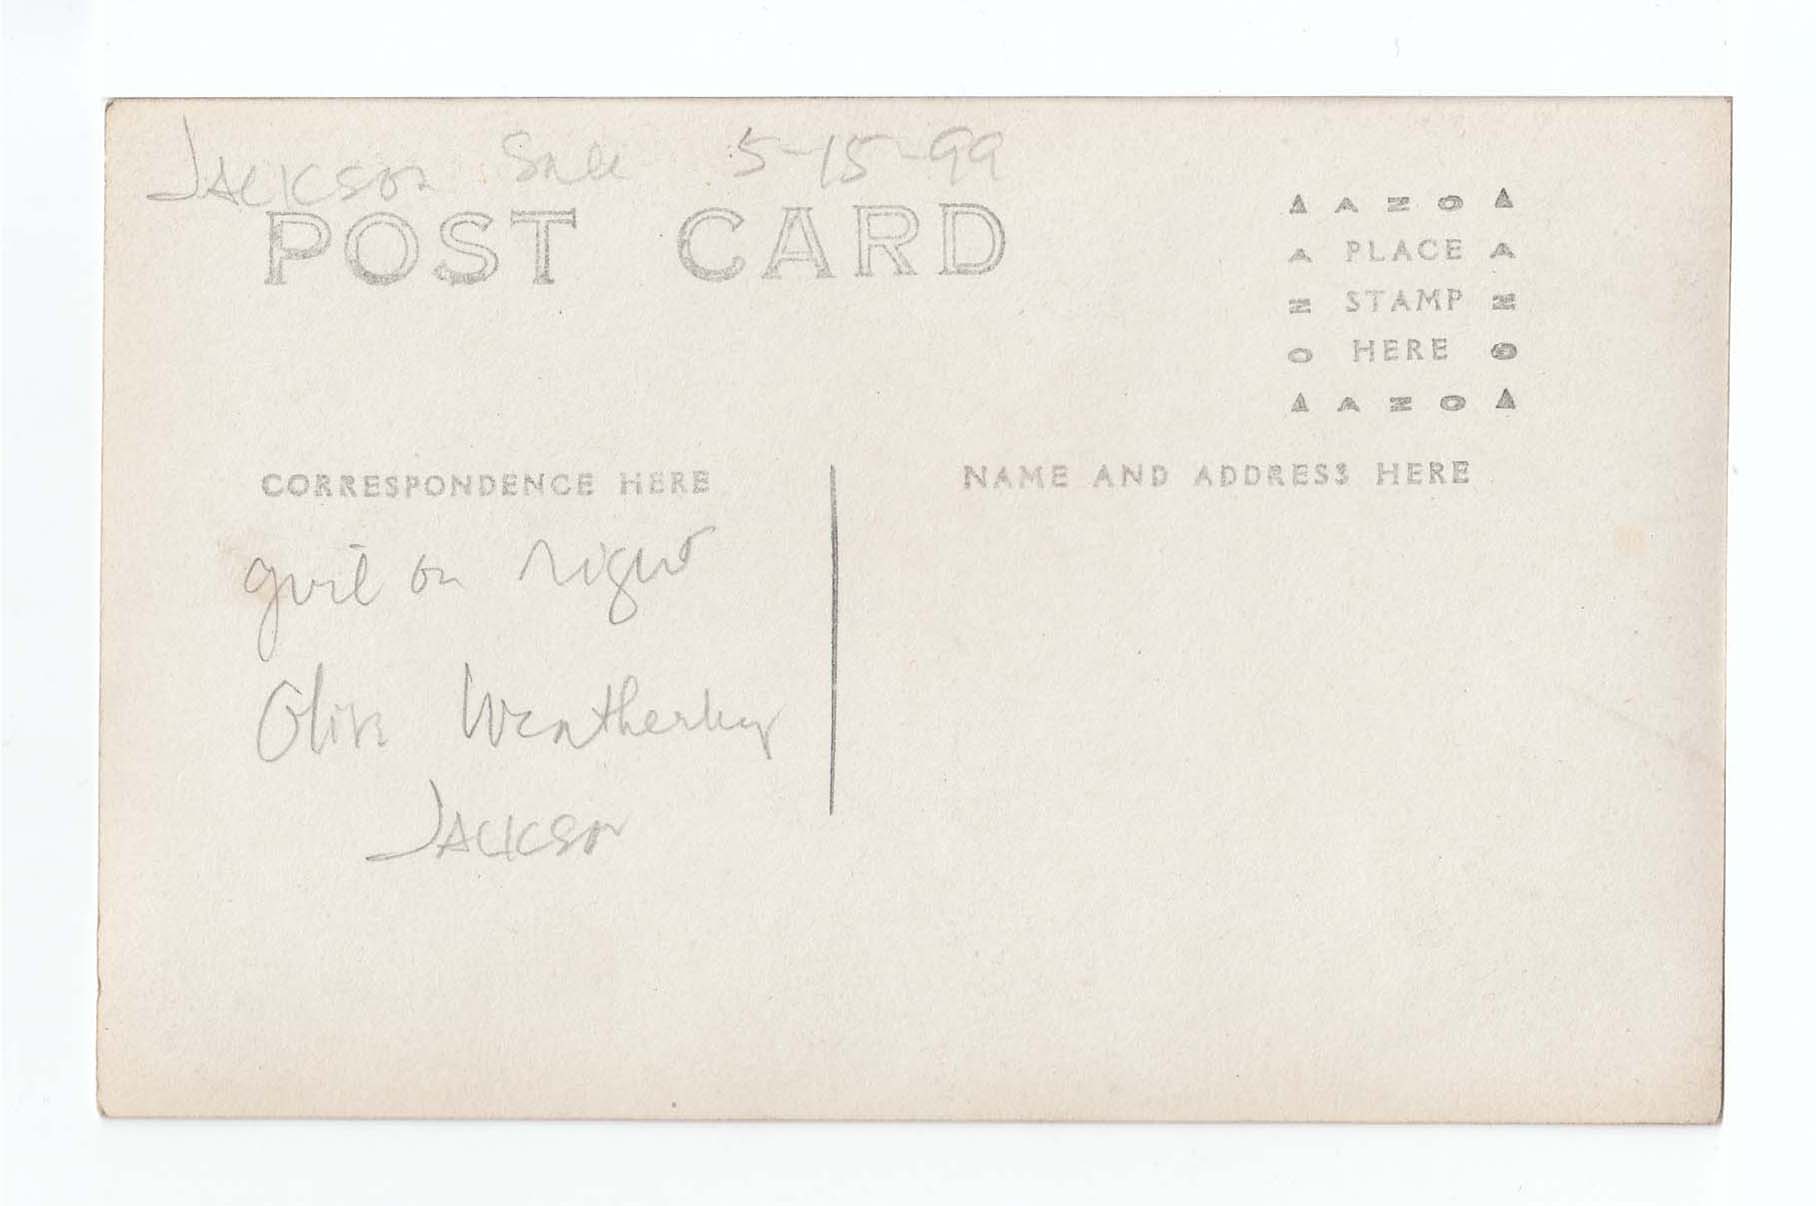 Jackson Sale 5-15-99
POST CARD
AZO
A PLACE A
Z STAMP Z
O HERE O
AZO
CORRESPONDENCE HERE
NAME AND ADDRESS HERE
girl on right
Olive Weatherley
Jackson